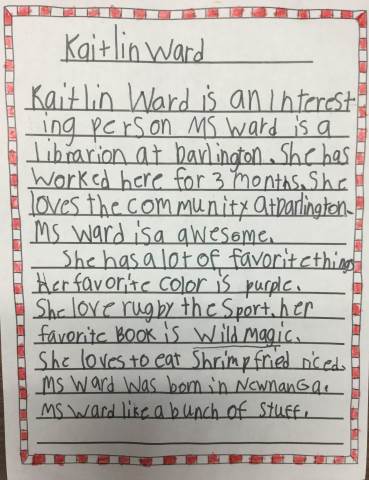 Kaitlin Ward
Kaitlin Ward is an Interest
ing person MS Ward is a
Librarion at Darlington. She has
worked here for 3 months. She
loves the community at Darlington.
MS Ward is a awesome.
She has a lot of favorite things
Her favorite color is purple.
She love rugby the sport. her
favorite BOOK is Wild magic.
She loves to eat Shrimp fried riced.
MS Ward was born in Newnan Ga.
MS Ward like a bunch of stuff.